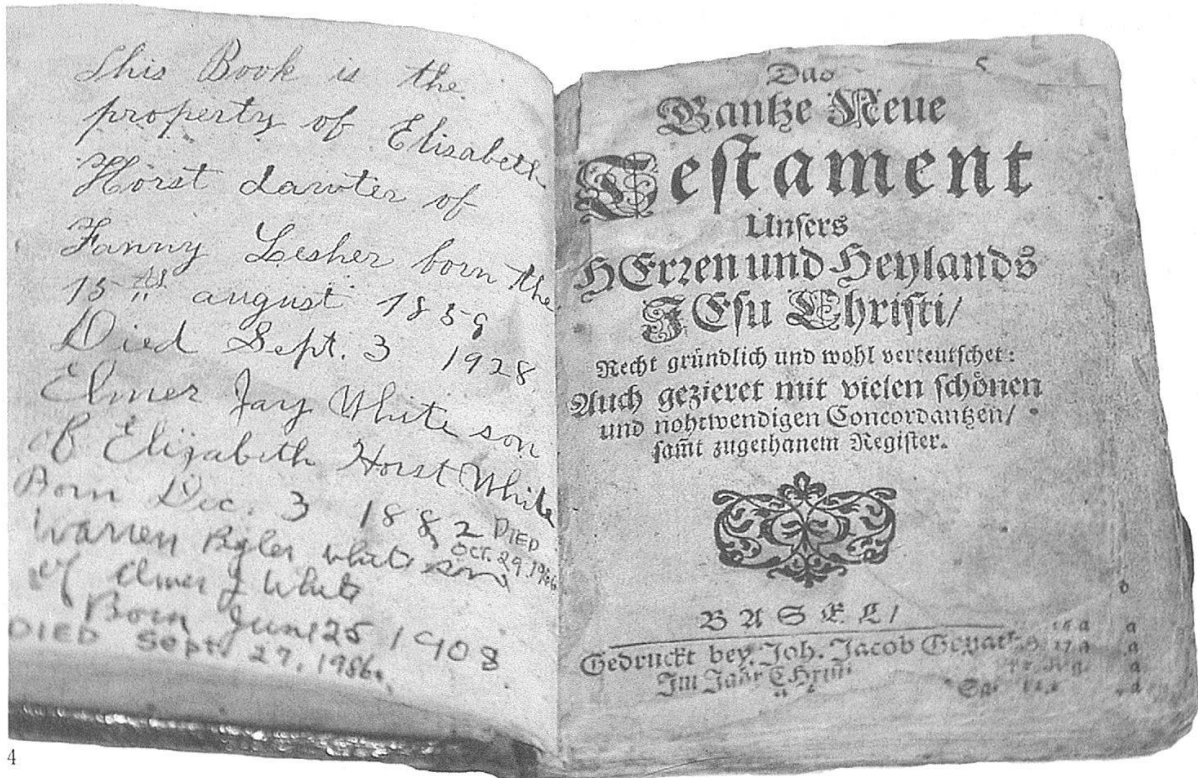 This Book is the
property of Elisabeth
Horst dawter of
Fanny Lesher born the
15th august 1859
Died Sept. 3 1928
Elmer Jay White son
of Elizabeth Horst White
Born Dec. 3 1882 DIED
OCT. 29, 1966
Warren Byler White son
of Elmer J White
Born June 25 1908
DIED Sept. 27, 1986.
Das
Gantze Neue
Testament
Unsers
HErren und Heylands
JEsu Christi/
Recht gründlich und wohl verteutschet:
Auch gezieret mit vielen schönen
und nohtwendigen Concordantzen/
sam̃t zugethanem Register.
BASEL/
Gedruckt bey Joh. Jacob
Im Jahr
4